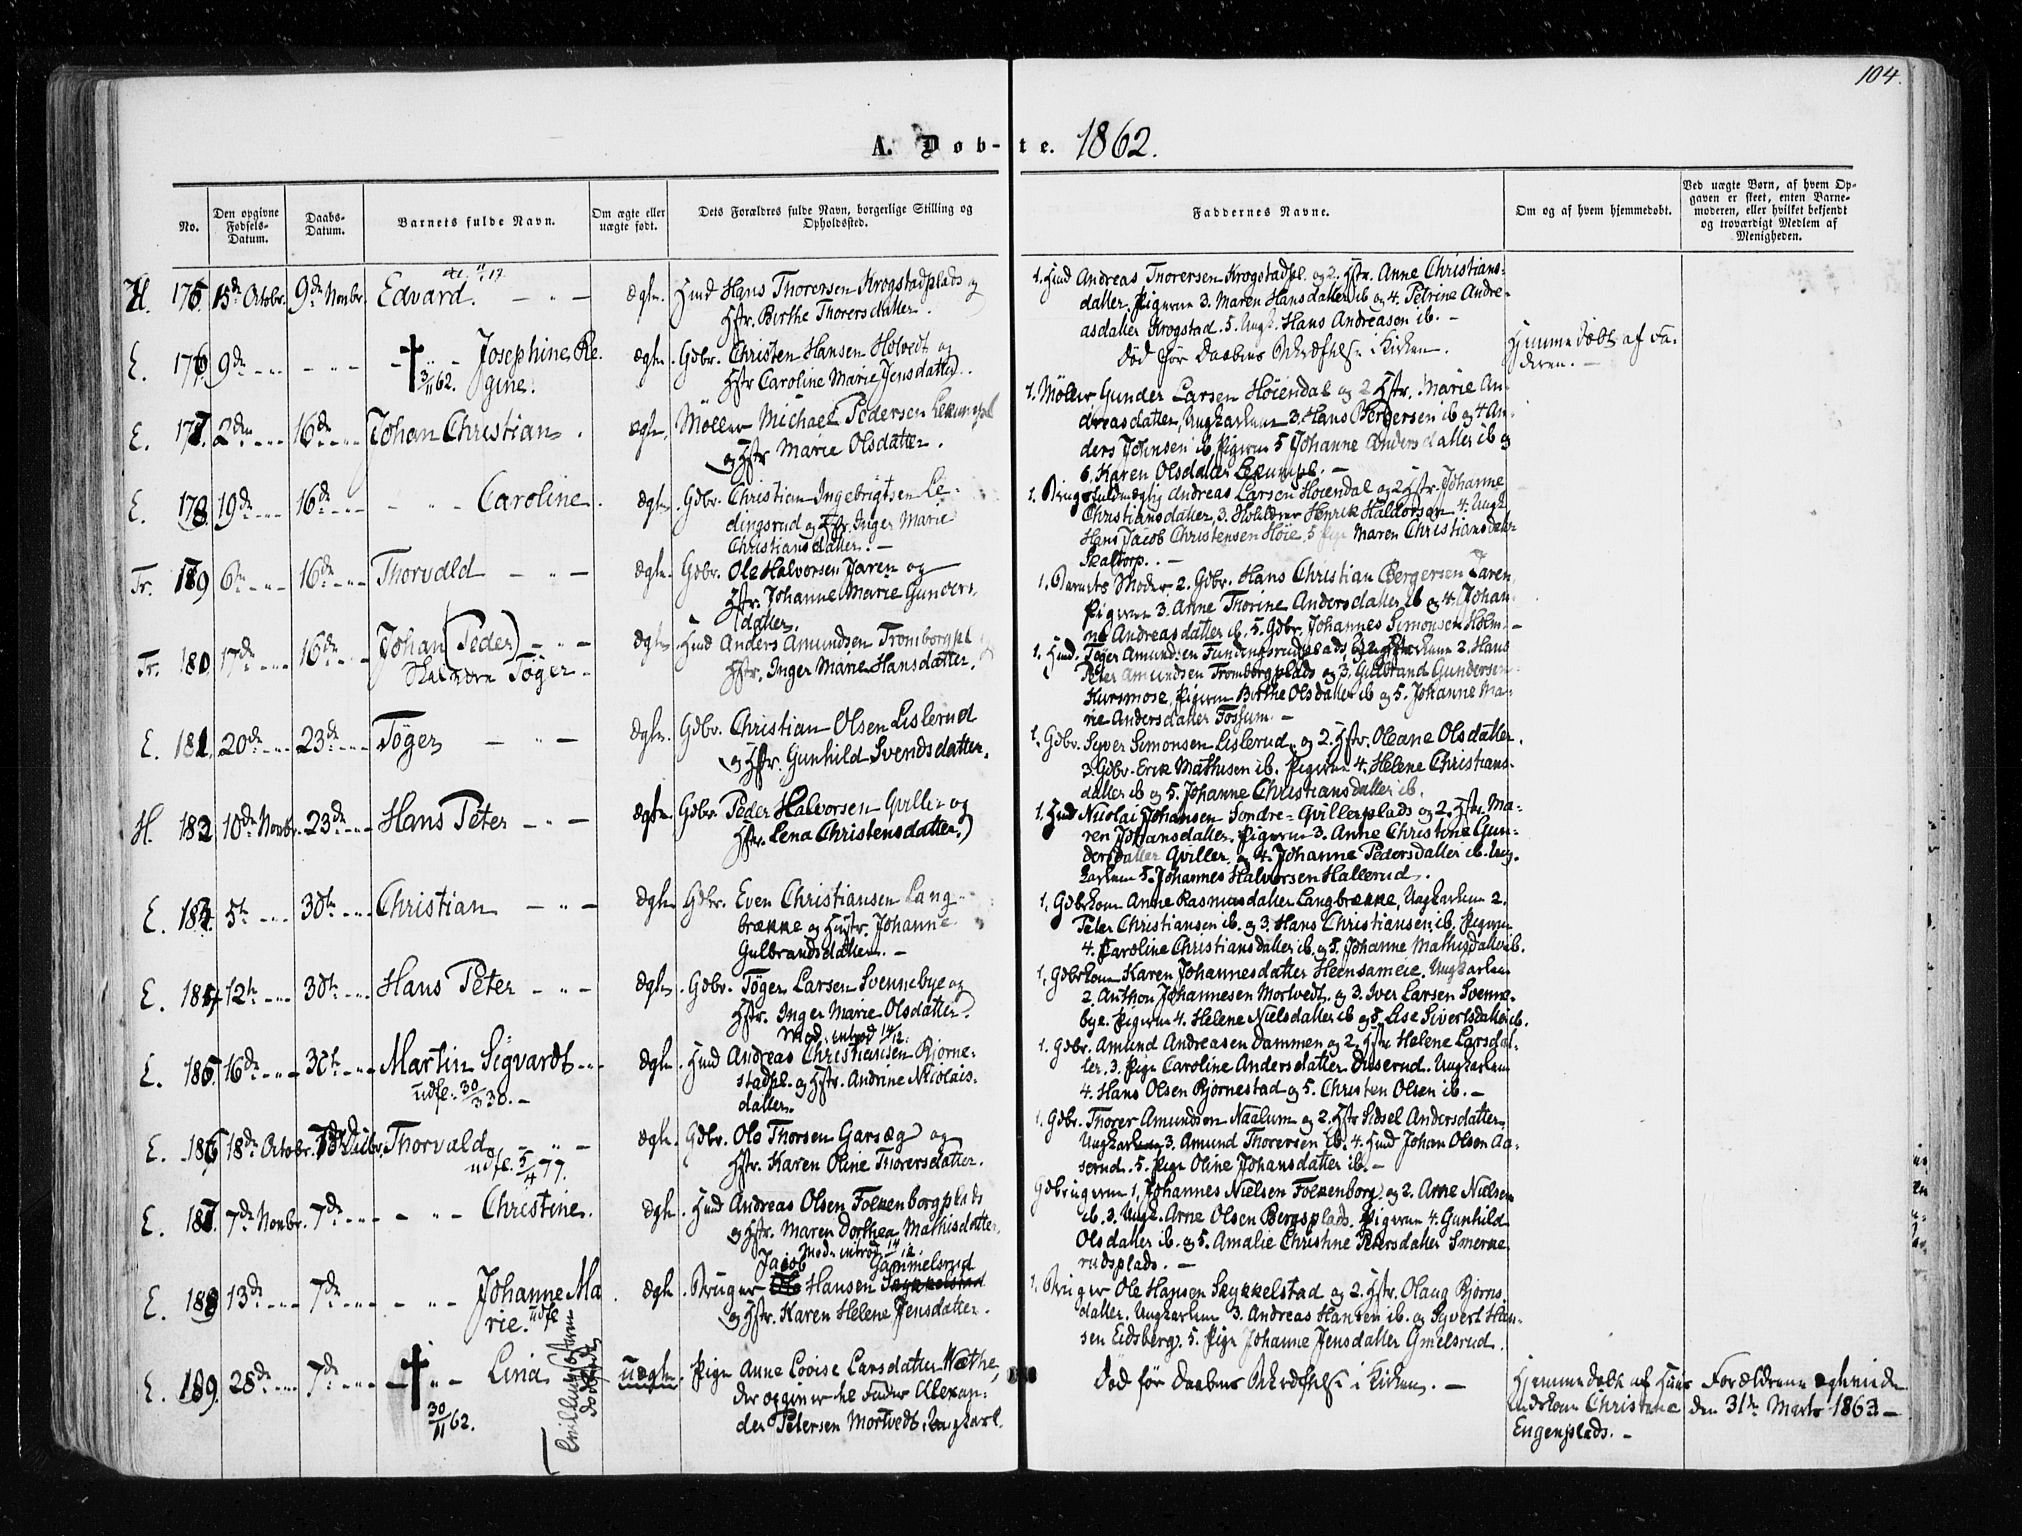 104.
A. Døb-te. 1862.
No.
Den opgivne Fødsels-Datum.
Daabs-Datum.
Barnets fulde Navn.
Om ægte eller uægte født.
Dets Forældres fulde Navn, borgerlige Stilling og Opholdssted.
Faddernes Navne.
Om og af hvem hjemmedøbt.
Ved uægte Børn, af hvem Opgaven er skeet, enten Barnemoderen, eller hvilket bekjendt og troværdigt Medlem af Menigheden.
H. 175 15de Octobr. 9de Novbr. Edvard. — " — ægte. Hmd Hans Thorersen Krogstadplads og
Hstr. Birthe Thorersdatter.
1. Hmd Andreas Thorersen Krogstadpl. og 2. Hstr. Anne Christians-
datter, Pigerne 3. Maren Hansdatter ib og 4. Petrine Andre-
asdatter Krogstad. 5. Ungk. Hans Andreasen ib. —
E. 176. 9de - " - - " - † 3/11 62. Josephine Re-
gine. ægte. Gdbr. Christen Hansen Holvedt og
Hstr Caroline Marie Jensdatter.
Død før Daabens Bekræftelse i Kirken.
Hjemmedøbt af Fa-
deren. —
E. 177. 2den - " - 16de - " - Johan Christian. ægte. Møller Michael Pedersen Lekumpl
og Hstr Marie Olsdatter.
1. Møller Gunder Larsen Høiendal og 2 Hstr. Marie An-
dreasdatter, Ungkarlene 3. Hans Bergersen ib og 4 An-
ders Johnsen ib Pigerne 5 Johanne Andersdatter ib og
6. Karen Olsdatter Lekumpl. —
E. 178. 19de - " - 16de - " - - " - Caroline. ægte. Gdbr. Christian Ingebrigtsen Le-
dingsrud og Hstr. Inger Marie
Christiansdatter. —
1. Andreas Larsen Høiendal og 2 Hstr. Johanne
Christiansdatter, 3. Henrik Haldorsen 4. Ungk
Hans Jacob Christensen Høie, 5 Pige Maren Christiansdatter
Skaltorp. —
Tr. 179 6te - " - 16de - " - Thorvald — " — ægte. Gdbr. Ole Halvorsen Jaren og
Hstr. Johanne Marie Gunders-
datter.
1. Barnets Moder 2. Gdbr. Hans Christian Bergersen Jaren,
Pigerne 3. Anne Thorine Andersdatter ib og 4. Johan-
ne Andreasdatter ib. 5. Gdbr. Johannes Simonsen Holm. —
Tr. 180 17de - " - 16de - " - Johan (Peder) — " — Tøger. ægte. Hmd Anders Amundsen Tromborgpl
Hstr. Inger Marie Hansdatter.
1. Hmd. Tøger Amundsen 2. Hans
Peter Amundsen Tromborgplads og 3. Gulbrand Gundersen
Kursmose, Pigerne Birthe Olsdatter ib og 5. Johanne Ma-
rie Andersdatter Fossum. —
E. 181. 20de - " - 23de - " - Tøger — " — ægte. Gdbr. Christian Olsen Lislerud
og Hstr. Gunhild Svendsdatter.
1. Gdbr. Syver Simonsen Lislerud, og 2. Hstr. Oleane Olsdatter.
3. Gdbr. Erik Mathisen ib. Pigerne 4. Helene Christians-
datter ib og 5. Johanne Christiansdatter ib.
H. 182 10de Novbr. 23de - " - Hans Peter — " — ægte Gdbr. Peder Halvorsen Gviller og
Hstr. Lena Christensdatter.
1. Hmd Nicolai Johansen Søndre-Gvillerplads og 2. Hstr. Ma-
ren Johansdatter. Pigerne 3. Anne Christine Gun-
dersdatter Gviller, og 4. Johanne Pedersdatter ib. Ung-
karlene 5. Johannes Halvorsen Hallerud.
E. 183. 5te - " - 30te - " - Christian — " — ægte. Gdbr. Even Christiansen Lang-
brække og Hustr. Johanne
Gulbrandsdatter. —
1. Gdbrkone Anne Rasmusdatter Langbrække, Ungkarlene 2.
Peter Christiansen ib. og 3. Hans Christiansen ib. Pigerne
4. Karoline Christiansdatter ib. og 5. Johanne Mathisdatter ib.
E. 184 12te - " - 30te - " - Hans Peter — " — ægte. Gdbr. Tøger Larsen Svennebye og
Hstr. Inger Marie Olsdatter.
1. Gdbrkone Karen Johannesdatter Heensameie. Ungkarlene
2. Anthon Johannesen Mortvedt. og 3. Iver Larsen Svenne-
bye. Pigerne 4. Helene Nielsdatter ib og 5. Lise Sivertsdatter ib.
Mod. introd 14/12.
E. 185. 16de - " - 30te - " - Martin Sigvardt - " - ægte. Hmd Andreas Christiansen Bjørne-
stadpl. og Hstr. Andrine Nicolais-
datter.
udfl. 30/3 38. —
1. Gdbr. Amund Andreasen Dammen og 2. Hstr Helene Larsdat-
ter. 3. Pige Caroline Andersdatter Duserud. Ungkarlene
4. Hans Olsen Bjørnestad og 5. Christen Olsen ib. —
E. 186 18de Octobr. 7de Decbr. Thorvald — " — ægte. Gdbr. Ole Thorsen Garsæg og
Hstr. Karen Oline Thorersdatter.
udfl. 5/4 77.
1. Gdbr. Thorer Amundsen Naalum og 2. Hstr Sidsel Andersdatter,
Ungkarlene 3. Amund Thorersen ib. 4. Hmd Johan Olsen Aa-
serud. 5. Pige Oline Johansdatter ib. —
E. 187. 7de Novbr. 7de - " - - " - Christine. ægte. Hmd Andreas Olsen Folkenborgplads
og Hstr. Maren Dorthea Mathisdatter.
Mod. introd. 14/12.
Gdbrugerne 1. Johannes Nielsen Folkenborg og 2. Arne Nielsen
ib. 3. Ungk. Arne Olsen Bergsplads. Pigerne 4. Gunhild
Olsdatter ib. og 5. Amalie Christine Petersdatter Smerke-
rudsplads. —
E. 188 13de - " - 7de - " - - " - Johanne Ma-
rie. udfl ægte. Bruger Ole Jacob Hansen Skykkelstad Gammelsrud
og Hstr. Karen Helene Jensdatter.
1. Bruger Ole Hansen Skykkelstad og 2. Hstr. Olaug Bjørns-
datter. Ungkarlene 3. Andreas Hansen ib. og Syvert Han-
sen Eidsberg. 5. Pige Johanne Jensdatter Gmelsrud.
E. 189. 28de - " - 7de - " - † 30/11 62. Lina uægte. Pige Anne Lovise Larsdatter
der opgiver til Fader Alexan-
der Petersen Mortvedt. Ungkarl.
Død før Daabens Bekræftelse i Kirken. —
Hjemmedøbt af Huus-
mandskone Christine
Engenplads. —
Forældrene
den 31te Marts 1863 —